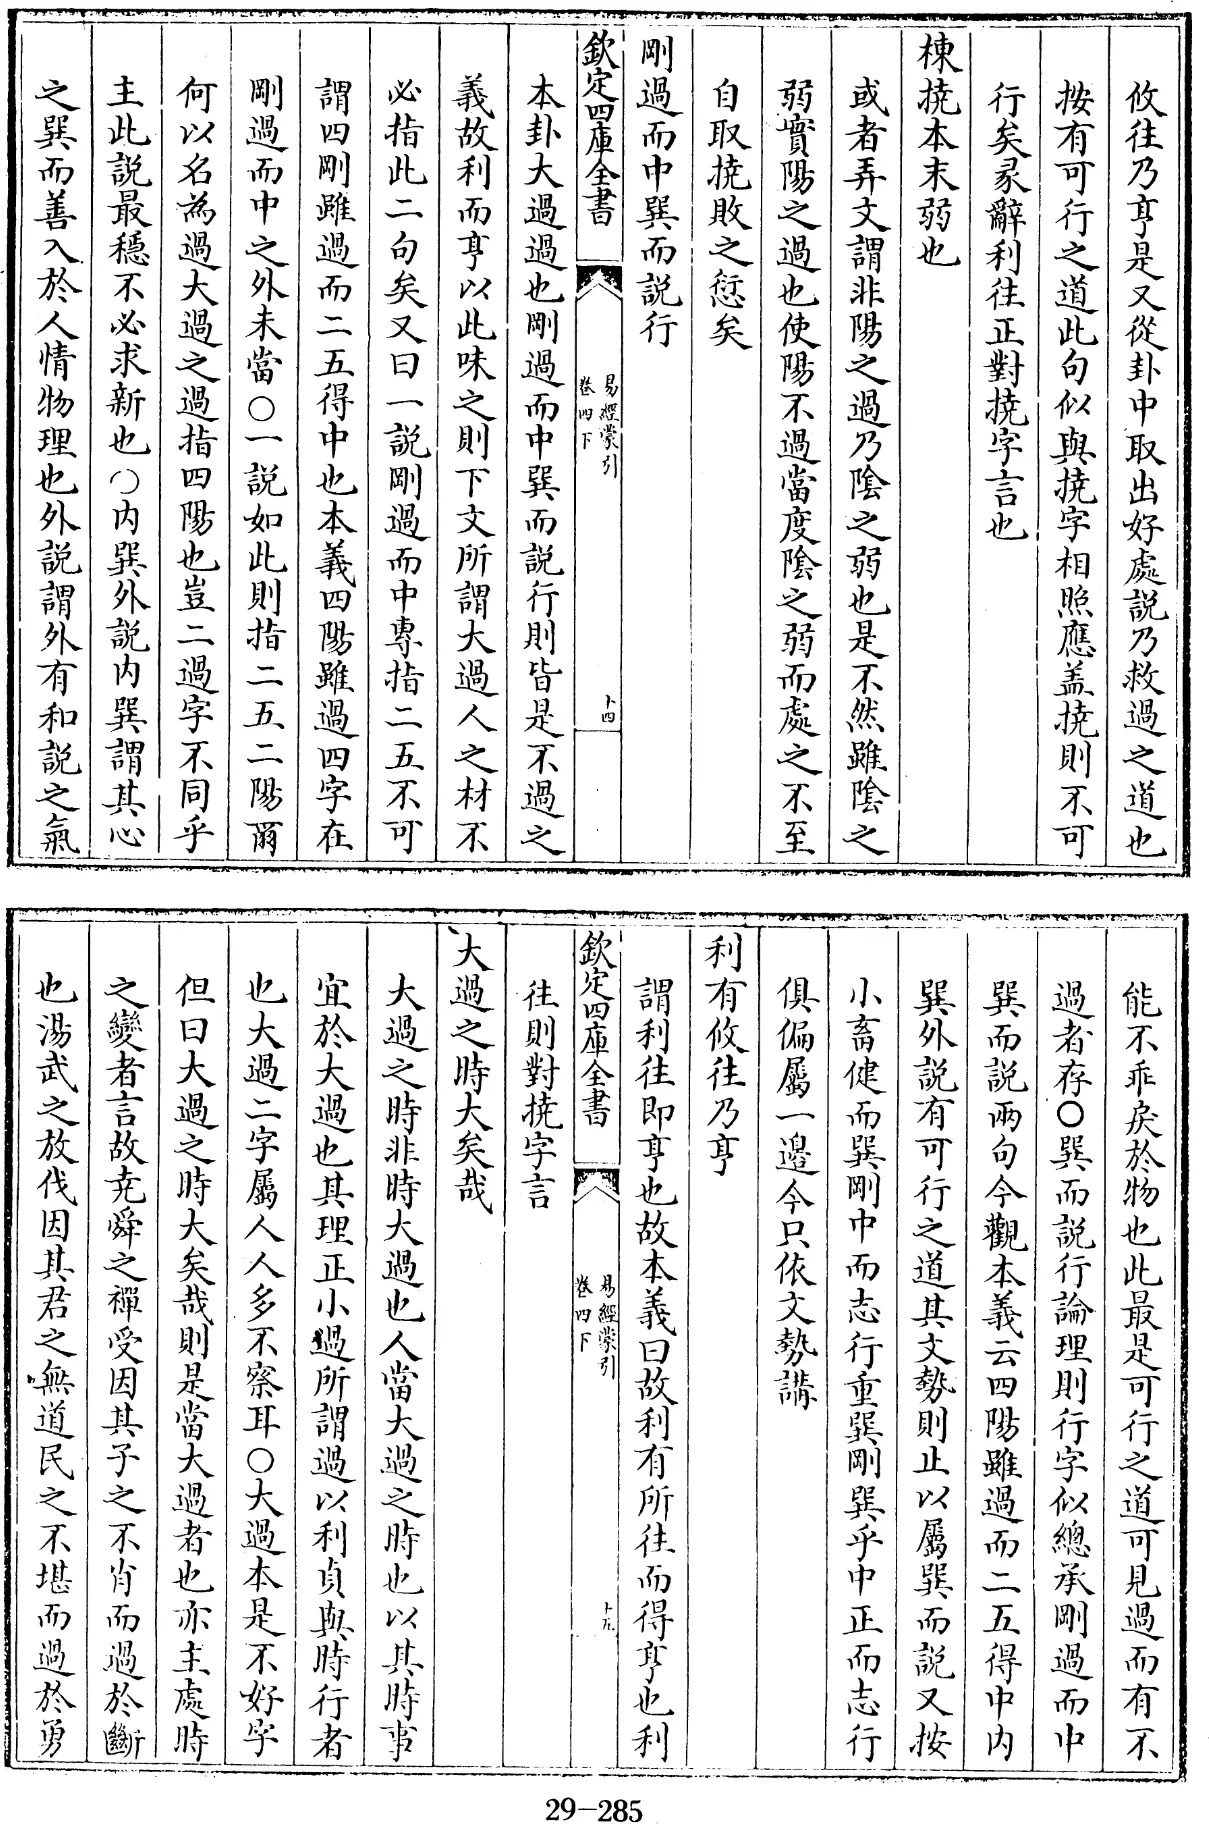 攸往乃亨是又從卦中取出好處説乃救過之道也
按有可行之道此句似與撓字相照應盖撓則不可
行矣彖辭利往正對撓字言也
棟撓本末弱也
或者弄文謂非陽之過乃陰之弱也是不然雖陰之
弱實陽之過也使陽不過當度陰之弱而處之不至
自取撓敗之愆矣
剛過而中巽而説行
欽定四庫全書
易經蒙引
卷四下
十四
本卦大過過也剛過而中巽而説行則皆是不過之
義故利而亨以此味之則下文所謂大過人之材不
必指此二句矣又曰一説剛過而中專指二五不可
謂四剛雖過而二五得中也本義四陽雖過四字在
剛過而中之外未當○一説如此則指二五二陽爾
何以名為過大過之過指四陽也豈二過字不同乎
主此説最穩不必求新也○内巽外説内巽謂其心
之巽而善入於人情物理也外説謂外有和説之氣
能不乖戾於物也此最是可行之道可見過而有不
過者存○巽而説行論理則行字似總承剛過而中
巽而説兩句今觀本義云四陽雖過而二五得中内
巽外説有可行之道其文勢則止以屬巽而説又按
小畜健而巽剛中而志行重巽剛巽乎中正而志行
俱偏屬一邉今只依文勢講
利有攸往乃亨
謂利往即亨也故本義曰故利有所往而得亨也利
欽定四庫全書
易經蒙引
卷四下
十五
往則對撓字言
大過之時大矣哉
大過之時非時大過也人當大過之時也以其時事
宜於大過也其理正小過所謂過以利貞與時行者
也大過二字屬人人多不察耳○大過本是不好字
但曰大過之時大矣哉則是當大過者也亦主處時
之變者言故堯舜之禪受因其子之不肖而過於斷
也湯武之放伐因其君之無道民之不堪而過於勇
29-285